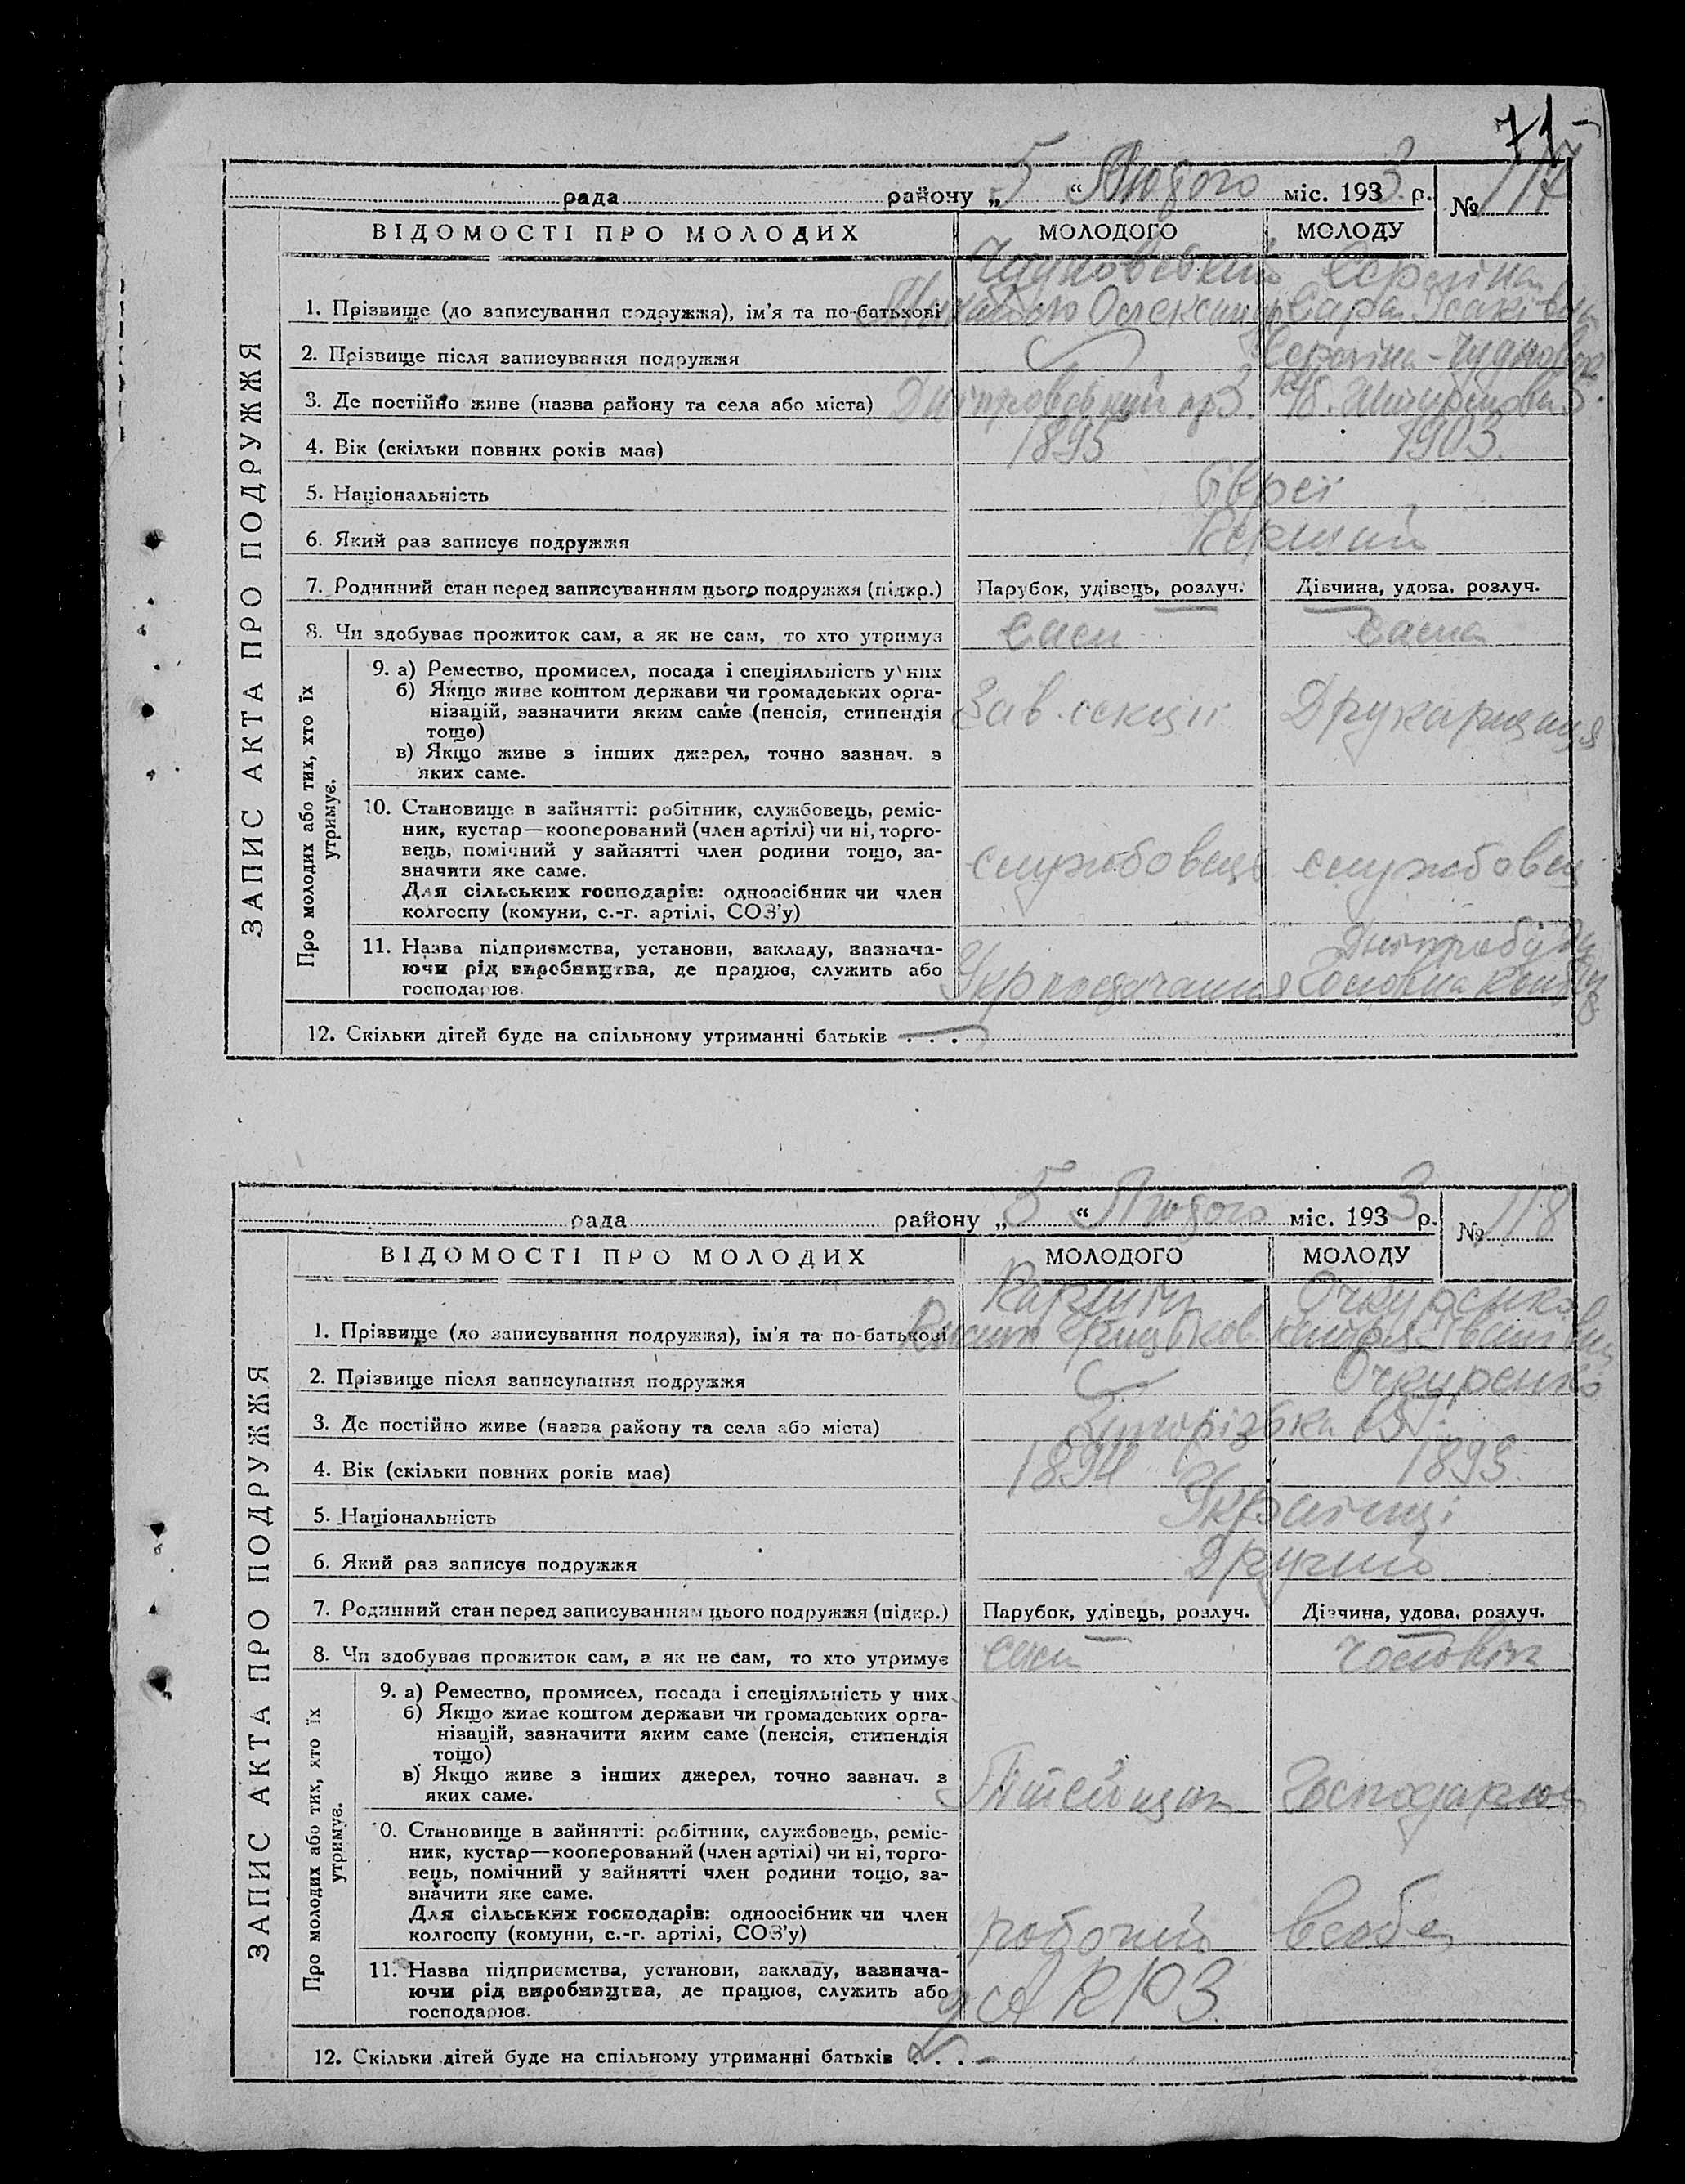 71
рада району „5“ Лютого міс. 1933 р. № 117
ВІДОМОСТІ ПРО МОЛОДИХ МОЛОДОГО МОЛОДУ
ЗАПИС АКТА ПРО ПОДРУЖЖЯ
Чудновський
1. Прізвище (до записування подружжя), ім'я та по-батькові Сара Ісаківна
2. Прізвище після записування подружжя
3. Де постійно живе (назва району та села або міста) Дніпровський
4. Вік (скільки повних років має) 1895 1903.
5. Національність Євреї
6. Який раз записує подружжя Перший
7. Родинний стан перед записуванням цього подружжя (підкр.) Парубок, удівець, розлуч. Дівчина, удова, розлуч.
8. Чи здобуває прожиток сам, а як не сам, то хто утримує сам сама
Про молодих або тих, хто їх утримує.
9. а) Ремество, промисел, посада і спеціяльність у них
б) Якщо живе коштом держави чи громадських орга-
нізацій, зазначити яким саме (пенсія, стипендія
тощо)
в) Якщо живе з інших джерел, точно зазнач. з
яких саме.
Зав. секції Друкарщиця
10. Становище в зайнятті: робітник, службовець, реміс-
ник, кустар—кооперований (член артілі) чи ні, торго-
вець, помічний у зайнятті член родини тощо, за-
значити яке саме.
Для сільських господарів: одноосібник чи член
колгоспу (комуни, с.-г. артілі, СОЗ'у)
службовець службовец
11. Назва підприємства, установи, закладу, зазнача-
ючи рід виробництва, де працює, служить або
господарює.
12. Скільки дітей буде на спільному утриманні батьків . . . —
рада району „5“ Лютого міс. 1933 р. № 118
ВІДОМОСТІ ПРО МОЛОДИХ МОЛОДОГО МОЛОДУ
ЗАПИС АКТА ПРО ПОДРУЖЖЯ
Очкуренко
1. Прізвище (до записування подружжя), ім'я та по-батькові
2. Прізвище після записування подружжя Очкуренко
3. Де постійно живе (назва району та села або міста)
4. Вік (скільки повних років має) 1894 1895
5. Національність Українці
6. Який раз записує подружжя Другий
7. Родинний стан перед записуванням цього подружжя (підкр.) Парубок, удівець, розлуч. Дівчина, удова, розлуч.
8. Чи здобуває прожиток сам, а як не сам, то хто утримує сам чоловік
Про молодих або тих, хто їх утримує.
9. а) Ремество, промисел, посада і спеціяльність у них
б) Якщо живе коштом держави чи громадських орга-
нізацій, зазначити яким саме (пенсія, стипендія
тощо)
в) Якщо живе з інших джерел, точно зазнач. з
яких саме.
0. Становище в зайнятті: робітник, службовець, реміс-
ник, кустар—кооперований (член артілі) чи ні, торго-
вець, помічний у зайнятті член родини тощо, за-
значити яке саме.
Для сільських господарів: одноосібник чи член
колгоспу (комуни, с.-г. артілі, СОЗ'у)
робочий
11. Назва підприємства, установи, закладу, зазнача-
ючи рід виробництва, де працює, служить або
господарює.
12. Скільки дітей буде на спільному утриманні батьків . . . —